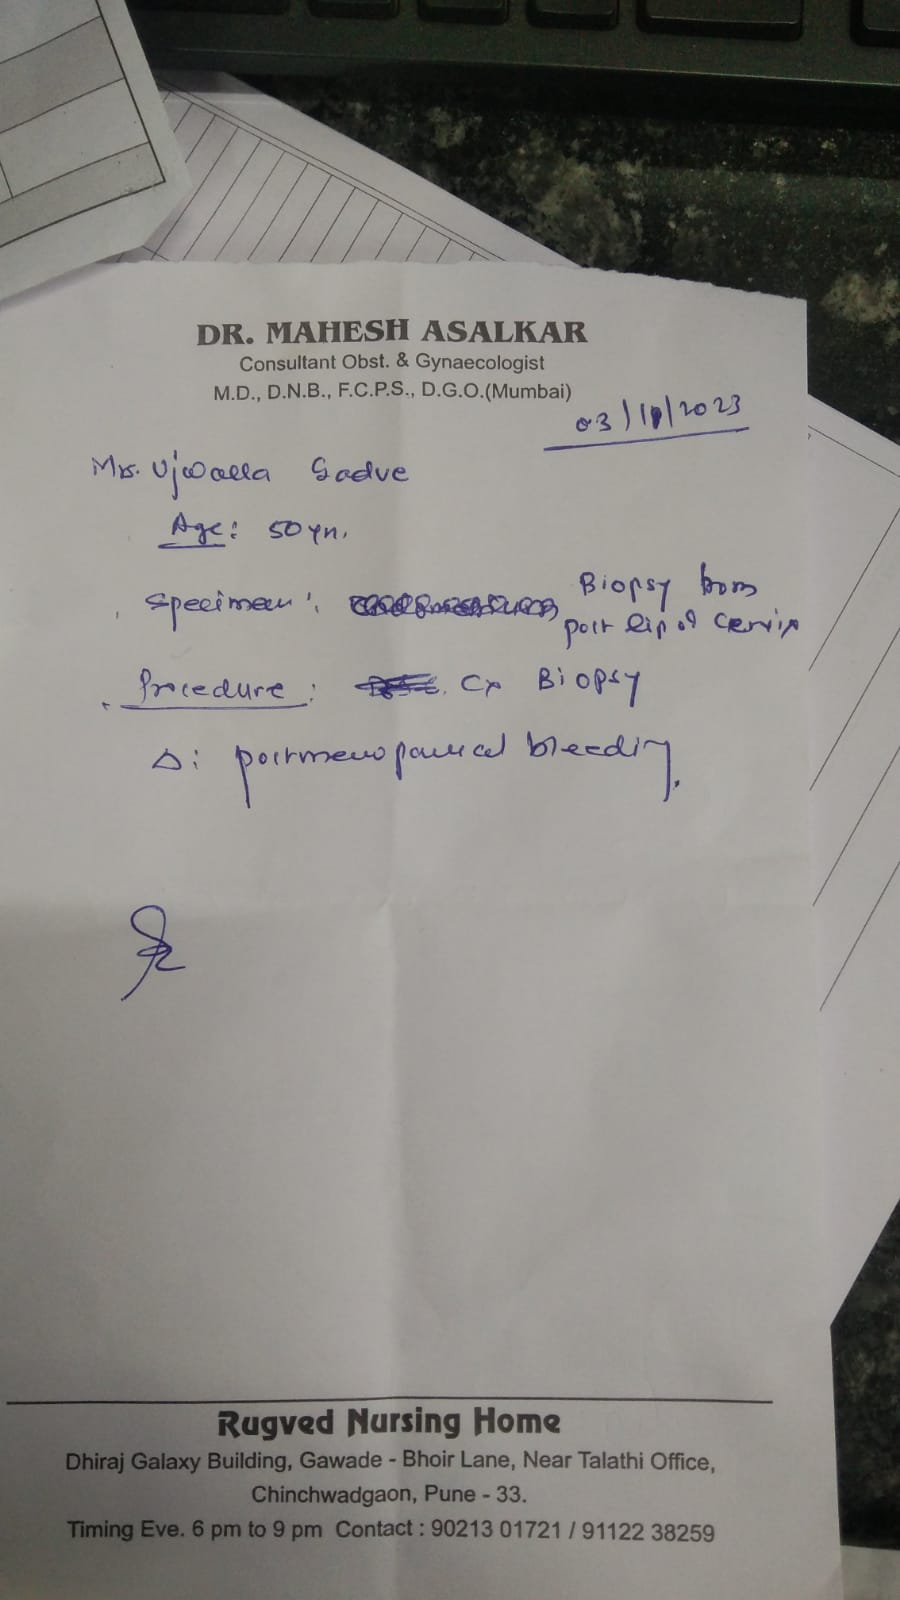 DR. MAHESH ASALKAR
Consultant Obst. & Gynaecologist
M.D., D.N.B., F.C.P.S., D.G.O.(Mumbai)
03/11/2023
Mrs. Ujwalla Gadve
Age: 50 yrs.
Specimen: Biopsy from
post lip of Cervix
Procedure: Cx Biopsy
Δ: postmenopausal bleeding.
Rugved Nursing Home
Dhiraj Galaxy Building, Gawade - Bhoir Lane, Near Talathi Office,
Chinchwadgaon, Pune - 33.
Timing Eve. 6 pm to 9 pm Contact : 90213 01721 / 91122 38259